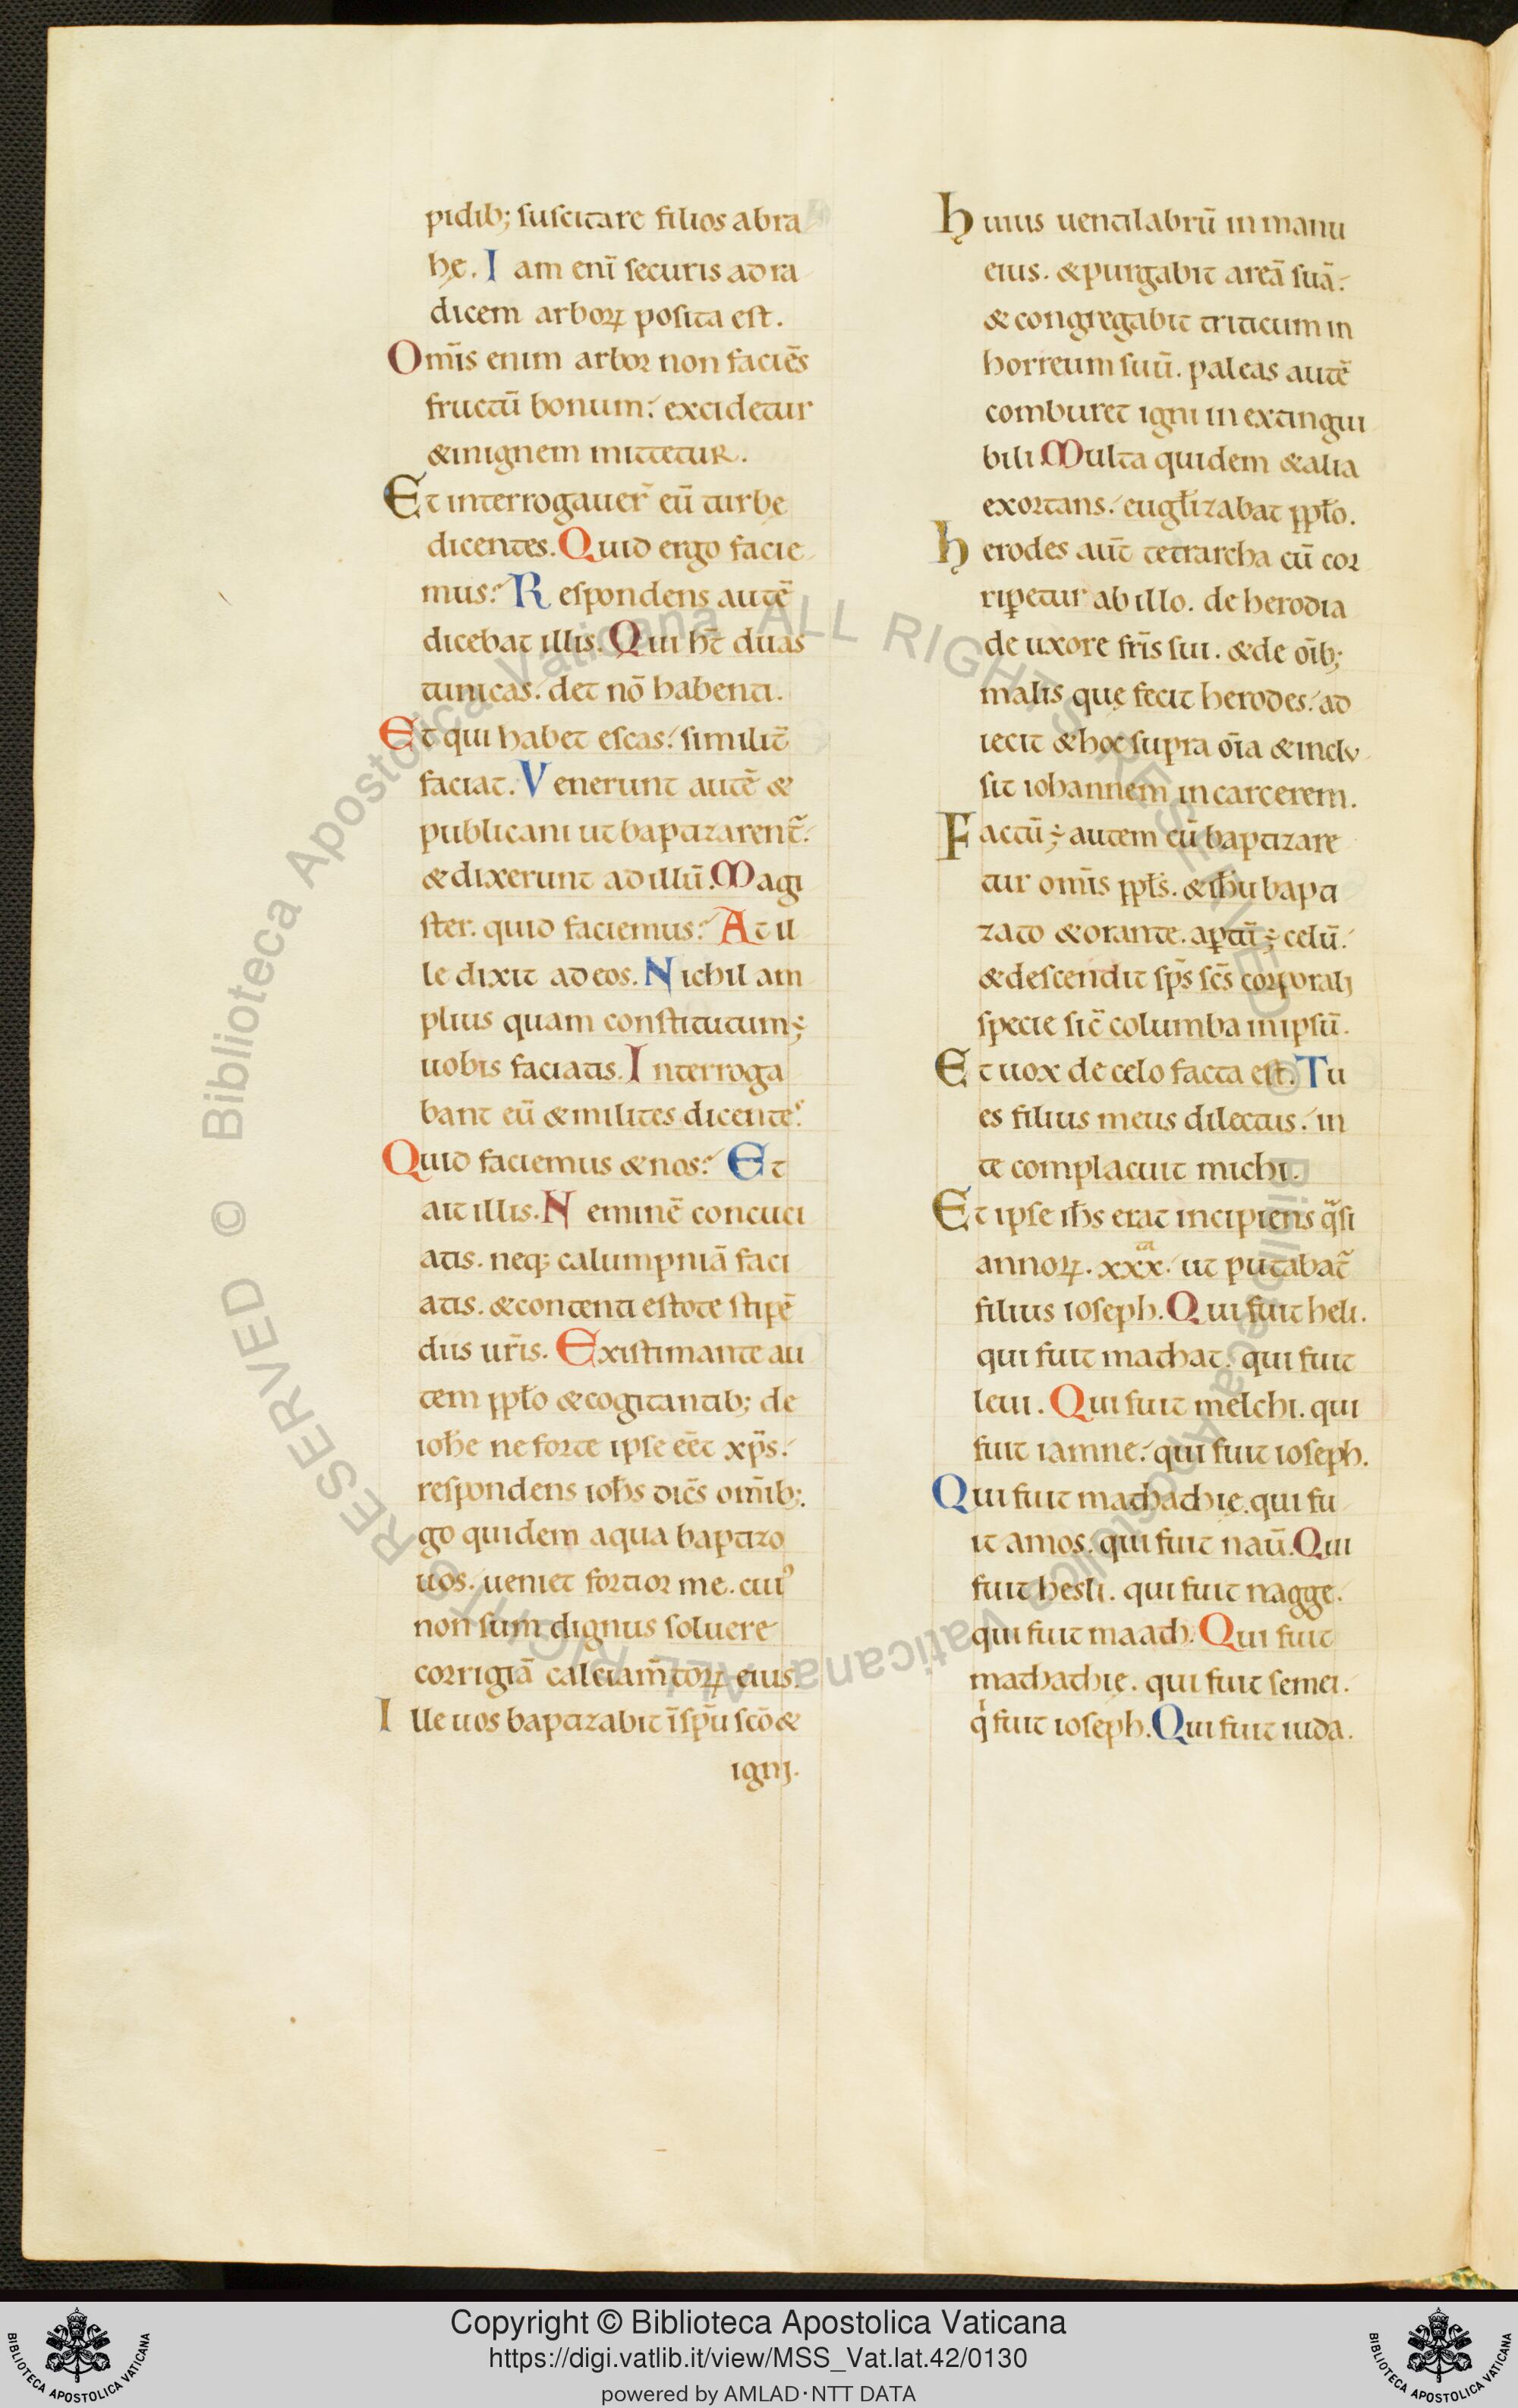 pidib; suscitare filios abra
hę. Iam enī securis ad ra
dicem arboꝝ posita est.
Om̄s enim arbor non faciēs
fructū bonum: excidetur
& in ignem mittetur.
Et interrogauer̄ eū turbę
dicentes. Quid ergo facie
mus? Respondens autē
dicebat illis. Qui ht̄ duas
tunicas. det nō habenti.
Et qui habet escas: similit̄
faciat. Venerunt autē &
publicani ut baptizarent̄.
& dixerunt ad illū. Magi
ster. quid faciemus? At il
le dixit ad eos. Nichil am
plius quam constitutum ÷
uobis faciatis. Interroga
bant eū & milites dicentes.
Quid faciemus & nos? Et
ait illis. Neminē concuci
atis. neq; calumpniā faci
atis. & contenti estote stipē
diis ur̄is. Existimante au
tem ppl̄o & cogitantib; de
ioh̄e ne forte ipse eēt xp̄s.
respondens ioh̄s dic̄s om̄ib;.
go quidem aqua baptizo
uos. ueniet fortior me. cuiꝰ
non sum dignus soluere
corrigiā calciam̄toꝝ eius.
Ille uos baptizabit ī sp̄u scō &
ignj.
huius uentilabrū in manu
eius. & purgabit areā suā.
& congregabit triticum in
horreum suū. paleas autē
comburet igni inextingui
bili. Multa quidem & alia
exortans. eugl̄izabat ppl̄o.
herodes aut̄ tetrarcha cū cor
riꝑetur ab illo. de herodia
de uxore fr̄is sui. & de oīb;
malis quę fecit herodes. ad
iecit & hoc supra oīa & inclu
sit iohannem in carcerem.
Factū ÷ autem cū baptizare
tur om̄is ppl̄s. & ih̄u bapti
zato & orante. aꝑtū ÷ celū.
& descendit sp̄s sc̄s corporalj
specie sic̄ columba in ipsū.
Et uox de celo facta est. Tu
es filius meus dilectus. in
te complacuit michi.
Et ipse ih̄s erat incipiens q̄si
annoꝝ. xxx.ta ut putabat̄
filius ioseph. Qui fuit heli.
qui fuit mathat. qui fuit
leui. Qui fuit melchi. qui
fuit iamne. qui fuit ioseph.
Qui fuit mathathię. qui fu
it amos. qui fuit naū. Qui
fuit hesli. qui fuit nagge.
qui fuit maath. Qui fuit
mathathię. qui fuit semei.
qͥ fuit ioseph. Qui fuit iuda.
© Biblioteca Apostolica Vaticana ALL RIGHTS RESERVED
© Biblioteca Apostolica Vaticana ALL RIGHTS RESERVED
Copyright © Biblioteca Apostolica Vaticana
https://digi.vatlib.it/view/MSS_Vat.lat.42/0130
powered by AMLAD·NTT DATA
BIBLIOTECA APOSTOLICA VATICANA
BIBLIOTECA APOSTOLICA VATICANA